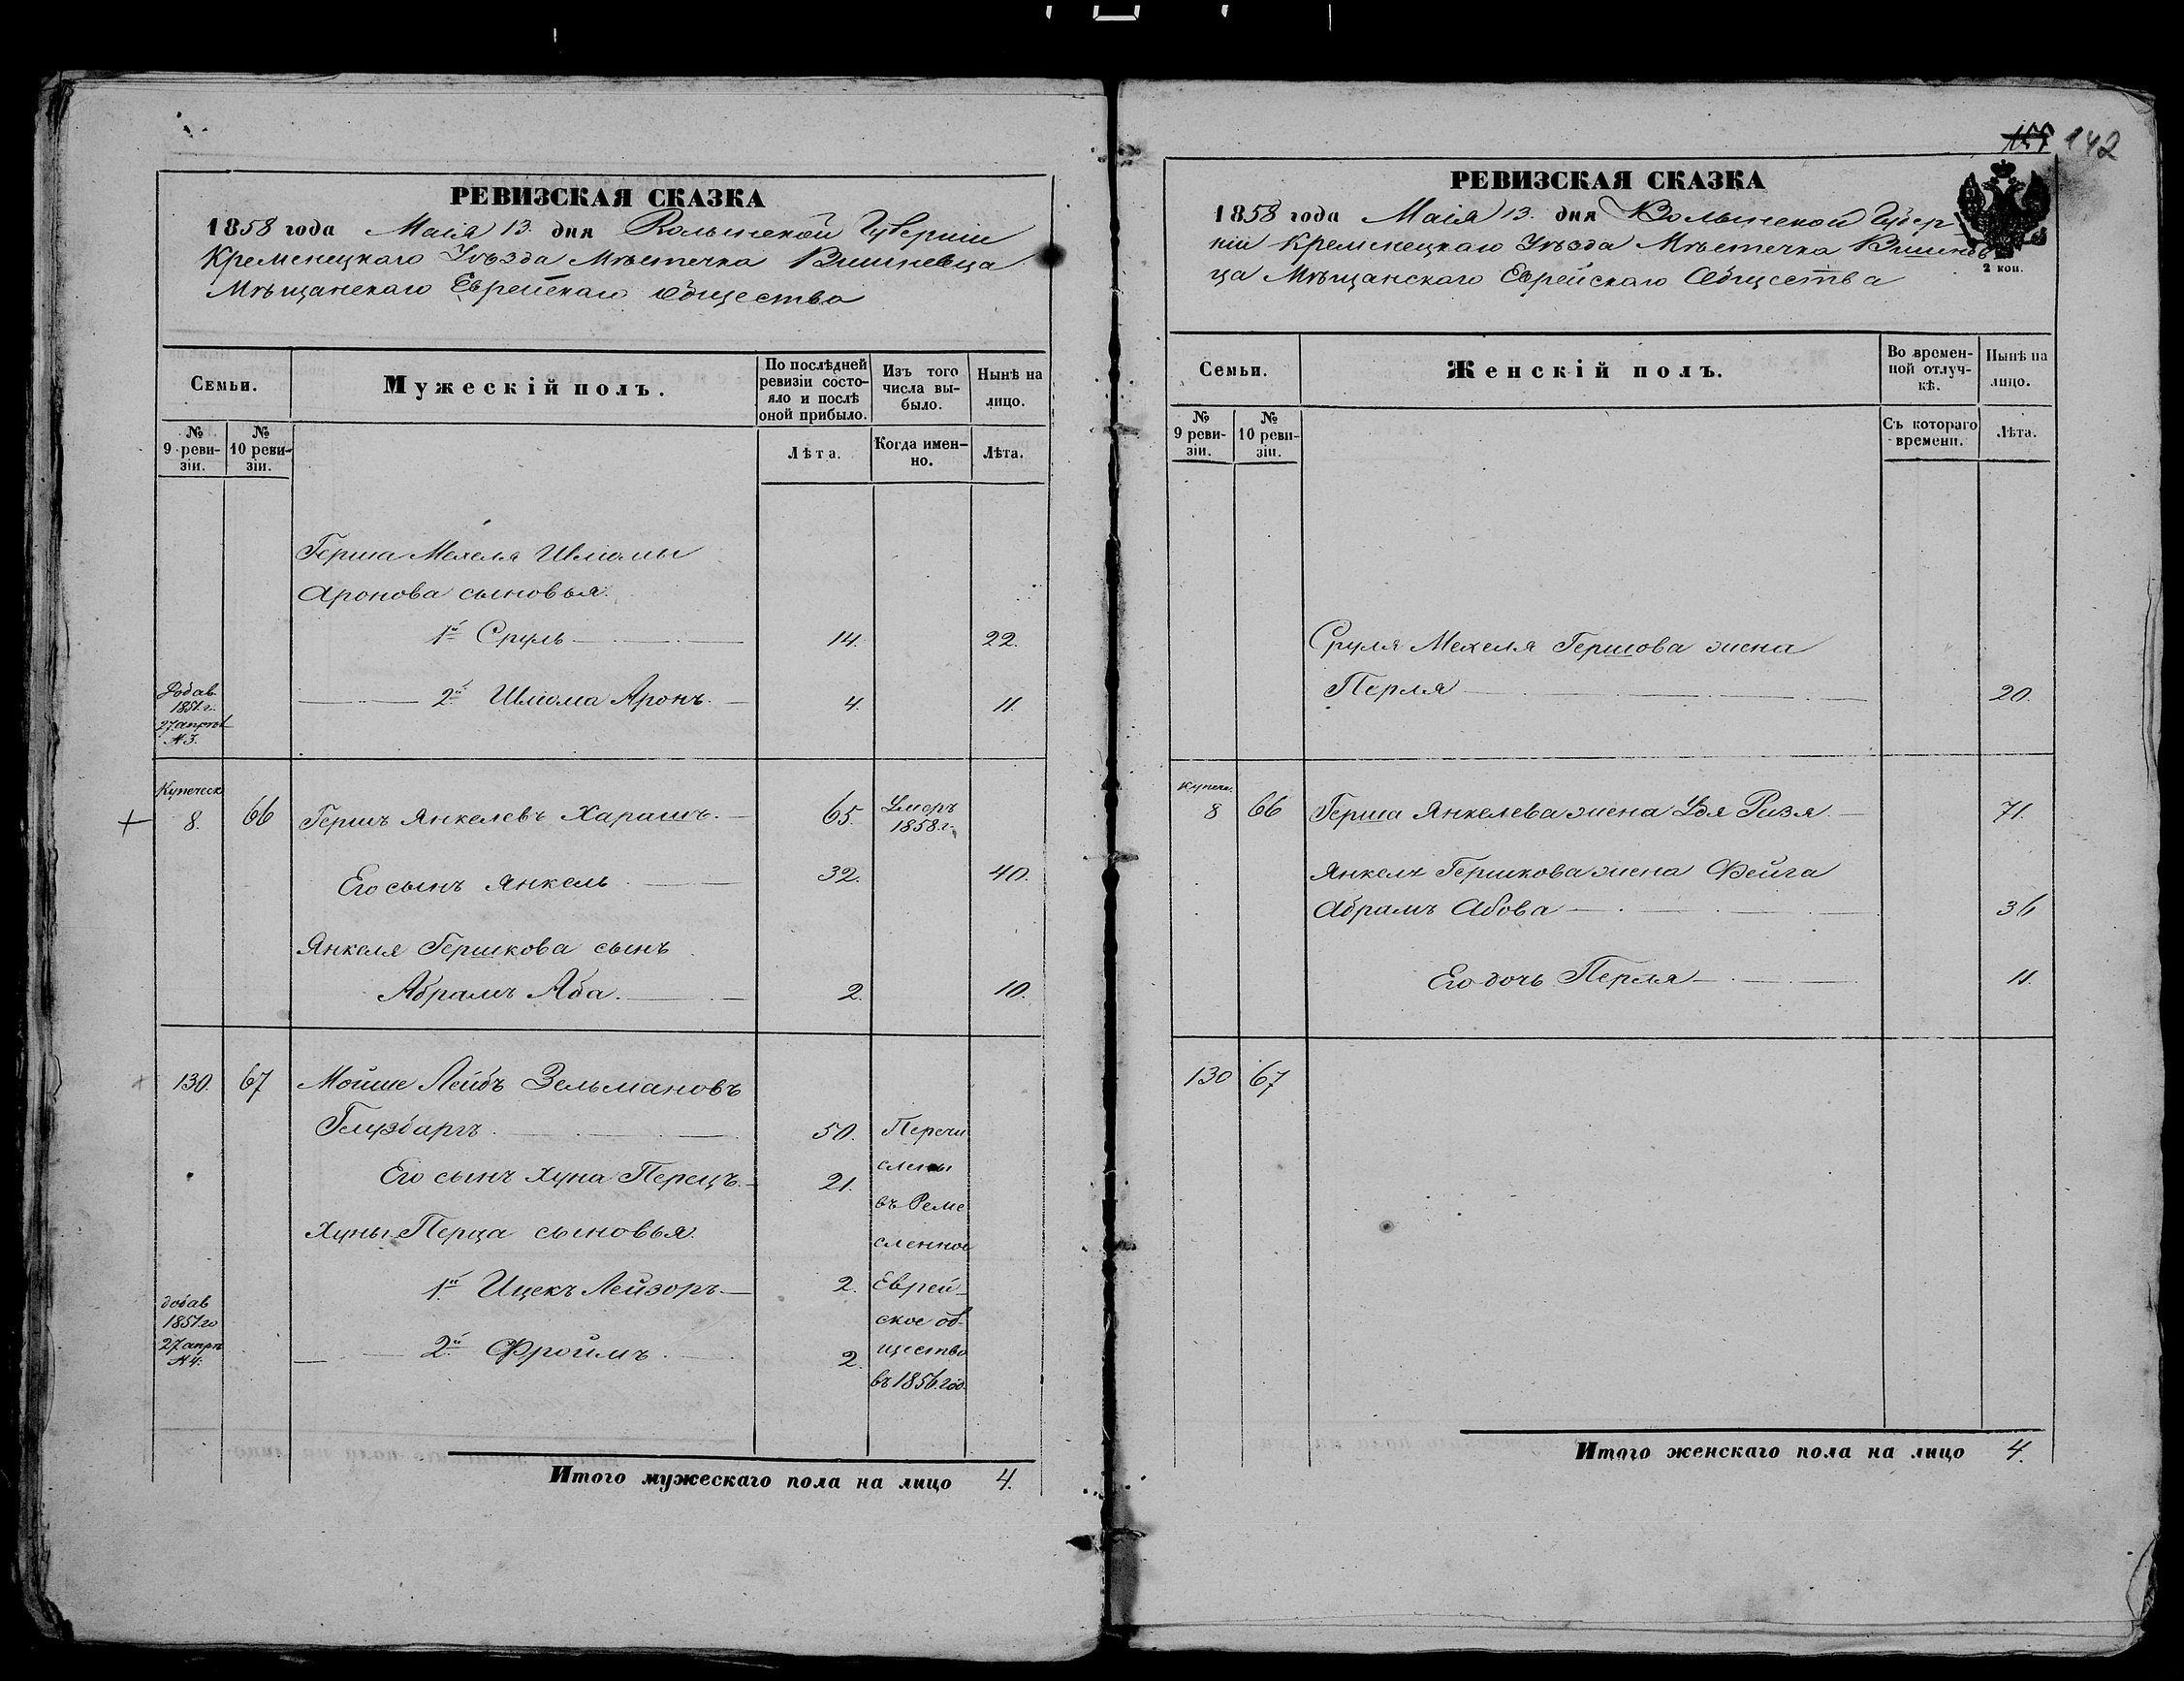 РЕВИЗСКАЯ СКАЗКА
1858 года Маія 13. дня Волынской Губерніи
Кременецкаго Уѣзда Мѣстечка Вишневца
Мѣщанскаго Еврейскаго Общества
Семьи.
Мужескій полъ.
По послѣдней ревизіи состояло и послѣ оной прибыло.
Изъ того числа выбыло.
Нынѣ на лицо.
№ 9 ревизіи.
№ 10 ревизіи.
Лѣта.
Когда именно.
Лѣта.
Герша Мехеля Шліомы
Аронова сыновья.
1й Сруль 14. 22.
Добав. 1851 г. 27 апрѣл № 3.
2й Шліома Аронъ. 4. 11.
Купеческ
8. 66 Гершъ Янкелевъ Харашъ. 65. Умеръ 1858 г.
Его сынъ Янкель 32. 40.
Янкеля Гершкова сынъ
Абрамъ Аба. 2. 10.
130. 67 Мойше Лейбъ Зельмановъ
50. Перечи
Его сынъ Хуна Перецъ. 21.
слены
въ Реме
Хуны Перца сыновья.
сленное
1й Ицекъ Лейзоръ 2. Еврей-
добав 1851 го 27 апрѣ № 4.
ское об-
2й Фроимъ. 2. щество
въ 1856. год.
Итого мужескаго пола на лицо 4.
142
РЕВИЗСКАЯ СКАЗКА
1858 года Маія 13. дня Волынской Губер
ніи Кременецкаго Уѣзда Мѣстечка Вишнев
2 коп.
ца Мѣщанскаго Еврейскаго Общества
Семьи.
Женскій полъ.
Во временной отлучкѣ.
Нынѣ на лицо.
№ 9 ревизіи.
№ 10 ревизіи.
Съ котораго времени.
Лѣта.
Сруля Мехеля Гершова жена
Перля 20.
Купеч.
8 66 Герша Янкелева жена Удя Ризя. 71.
Янкеля Гершкова жена Фейга
Абрамъ Абова 36
Его дочь Перля 11.
130 67
Итого женскаго пола на лицо 4.